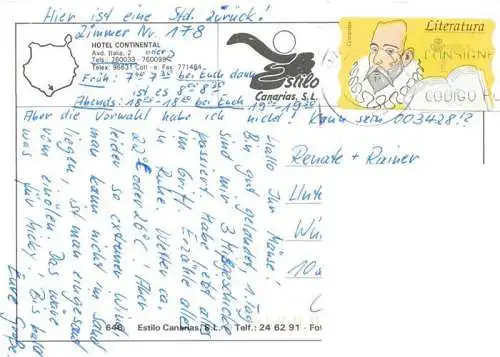 Hier ist eine Std. zurück!
Zimmer Nr. 178
HOTEL CONTINENTAL
Avd. Italia, 2
Tels.: 260033 - 760099
Telex: 96631 Coti - e. Fax: 771484
Früh: 7⁰⁰ 7³⁰ bei Euch dann
ist es 8⁰⁰ 8³⁰
Abends: 18⁰⁰-18³⁰ bei Euch 19⁰⁰-19³⁰
Aber die Vorwahl habe ich nicht! Kann sein 003428!?
Estilo
Canarias, S.L.
Cervantes
Literatura
CONSIGNE
CODIGO
Hallo Ihr Mäuse!
Bin gut gelandet, 1. Tag
sind mir 3 Mißgeschicke
passiert. Habe jetzt alles
im Griff. Erzähle alles
in Ruhe. Wetter ca.
22° oder 26°C! Aber
leider so extremer Wind
man kann nicht im Sand
liegen, ist man eingesaut
vom einölen. Das wäre
was für Micky! Bis bald
Eure
Renate + Rainer
Unte
Wü
10
646. Estilo Canarias, S.L. - Telf.: 24 62 91 - Fo